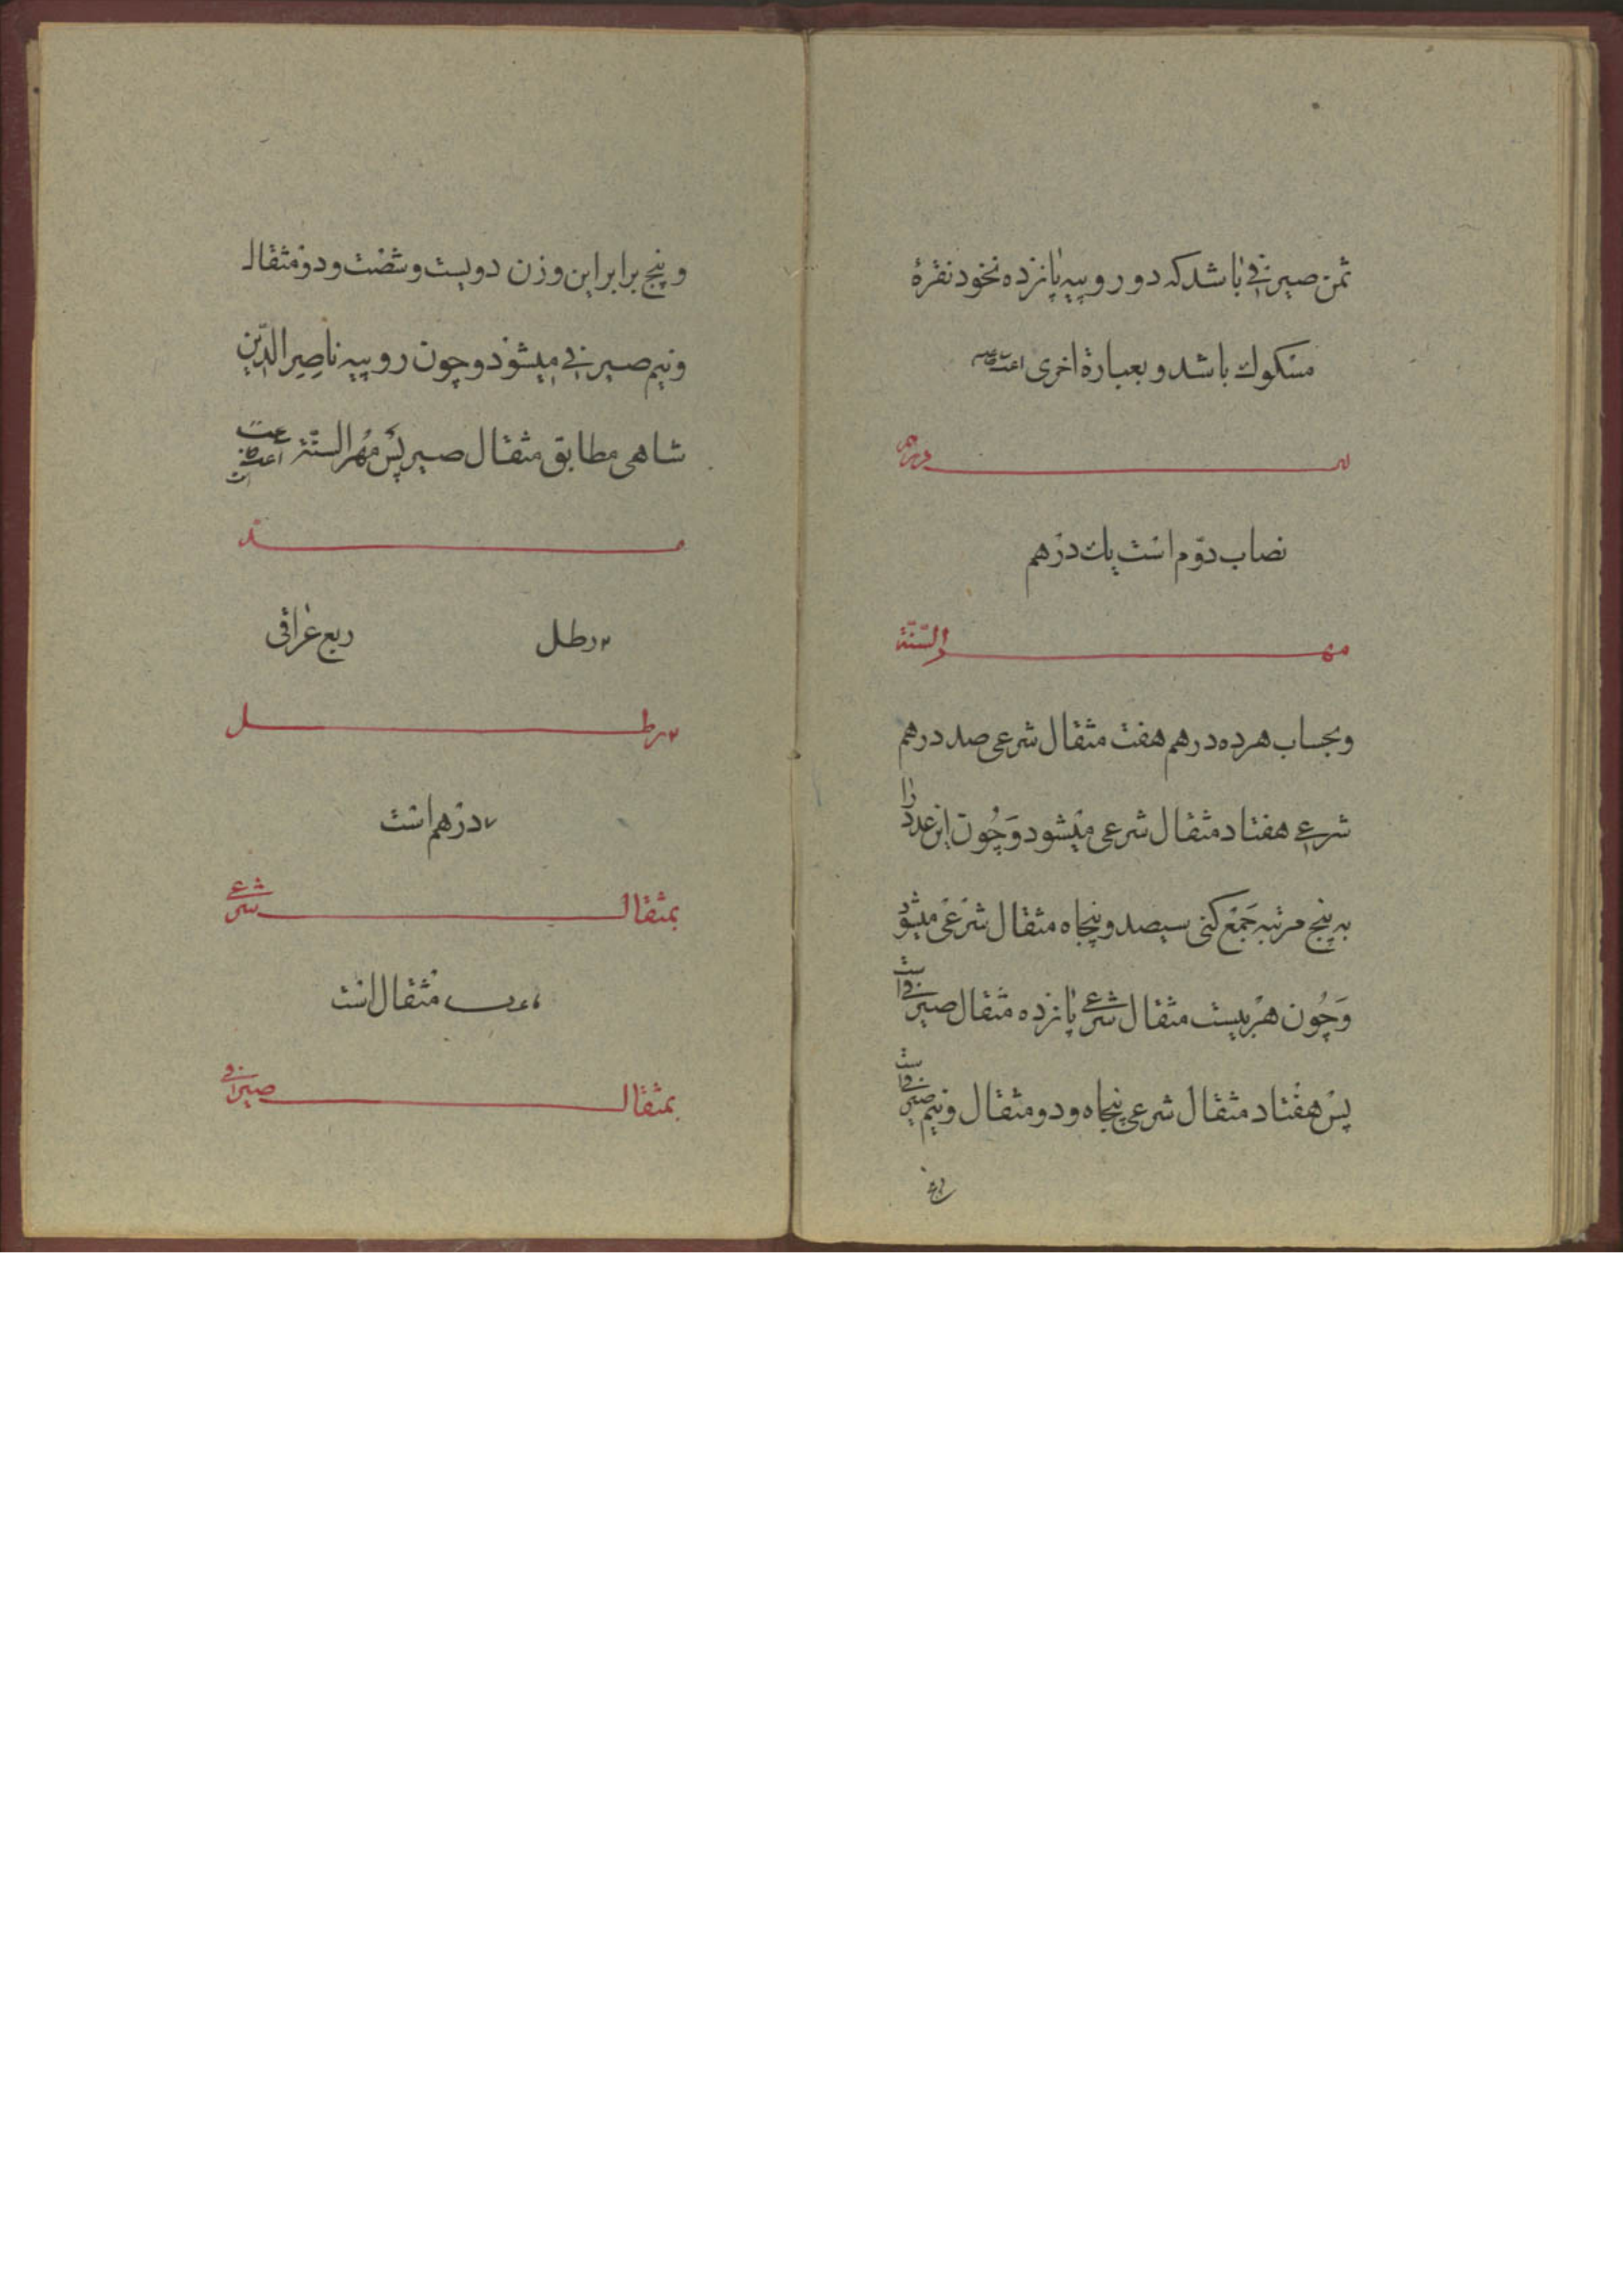 ثمن صیرفی باشد که دو روپیه پانزده نخود نقرهٔ
مسکوك باشد و بعبارة اخری
درهم
نصاب دوّم است یك درهم
مهـــرالسّنّة
و بحساب هر ده درهم هفت مثقال شرعی صد درهم
شرعی هفتاد مثقال شرعی میشود وَچُون این عدد را
به پنج مرتبه جَمْع کنی سیصد و پنجاه مثقال شَرْعی میشود
وَچُون هر بیست مثقال شرعی پانزده مثقال صیرفی است
پس هفتاد مثقال شرعی پنجاه و دو مثقال و نیم صیرفی است
و پنج برابر این وزن دویست و شصت و دو مثقال
و نیم صیرفی میشود و چون روپیه ناصِرالدّین
شاهی مطابق مثقال صیر پس مُهرالسنّة
مـــدّ
۲ رطل ربع عراقی
۲ رطـــل
درهم است
بمثقالـــشرعی
مثقال است
بمثقالـــصیرافی